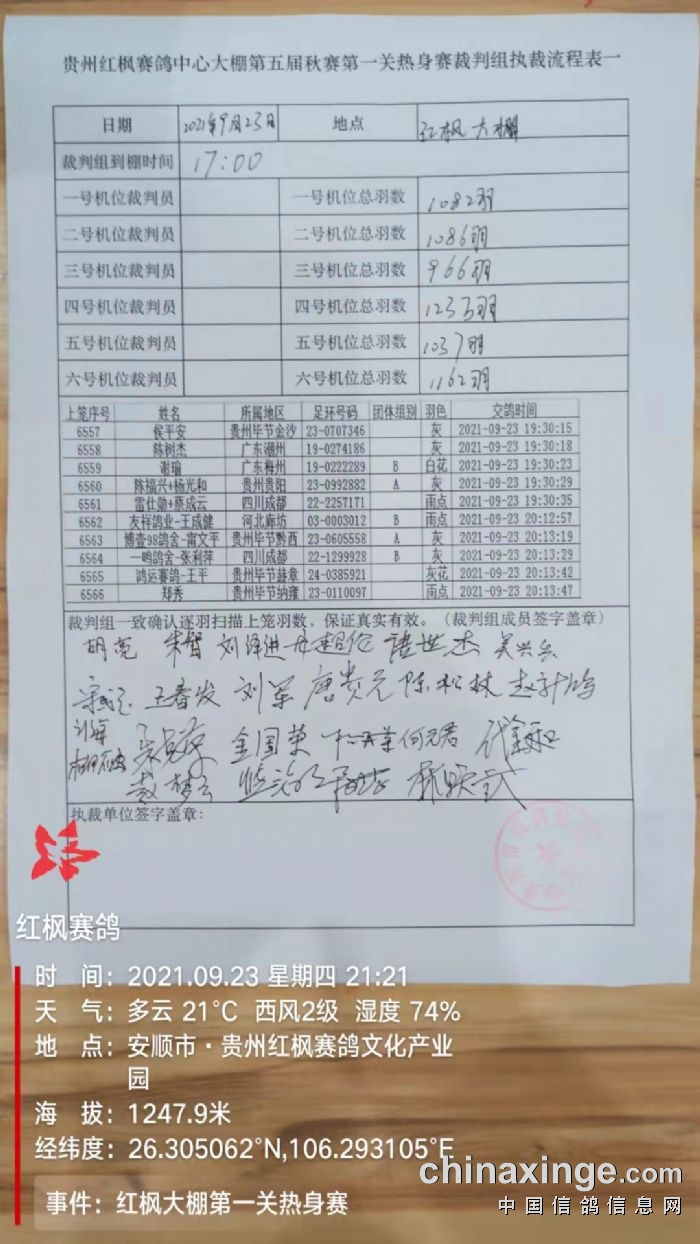 贵州红枫赛鸽中心大棚第五届秋赛第一关热身赛裁判组执裁流程表一
日期 2021年9月23日 地点 红枫大棚
裁判组到棚时间 17:00
一号机位裁判员 一号机位总羽数 1082羽
二号机位裁判员 二号机位总羽数 1086羽
三号机位裁判员 三号机位总羽数 966羽
四号机位裁判员 四号机位总羽数 1233羽
五号机位裁判员 五号机位总羽数 1037羽
六号机位裁判员 六号机位总羽数 1162羽
上笼序号 姓名 所属地区 足环号码 团体组别 羽色 交鸽时间
6557 侯平安 贵州毕节金沙 23-0707346 灰 2021-09-23 19:30:15
6558 陈树杰 广东潮州 19-0274186 灰 2021-09-23 19:30:18
6559 谢瑜 广东梅州 19-0222289 B 白花 2021-09-23 19:30:23
6560 陈福兴+杨光和 贵州贵阳 23-0992882 A 灰 2021-09-23 19:30:29
6561 雷仕勋+蔡成云 四川成都 22-2257171 雨点 2021-09-23 19:30:35
6562 友祥鸽业-王成健 河北廊坊 03-0003012 B 雨点 2021-09-23 20:12:57
6563 博壹98鸽舍-甯文平 贵州毕节黔西 23-0605558 A 灰 2021-09-23 20:13:19
6564 一鸣鸽舍-张利萍 四川成都 22-1299928 B 灰 2021-09-23 20:13:29
6565 鸿运赛鸽-王平 贵州毕节赫章 24-0385921 灰花 2021-09-23 20:13:42
6566 郑秀 贵州毕节纳雍 23-0110097 雨点 2021-09-23 20:13:47
裁判组一致确认逐羽扫描上笼羽数，保证真实有效。（裁判组成员签字盖章）
胡亮 朱智 刘泽进 唐世杰 吴兴兵
王春发 刘军 唐贵元 陈松林
金国荣 何元君
梦云
执裁单位签字盖章：
红枫赛鸽
时 间：2021.09.23 星期四 21:21
天 气：多云 21°C 西风2级 湿度 74%
地 点：安顺市·贵州红枫赛鸽文化产业
园
海 拔：1247.9米
经纬度：26.305062°N,106.293105°E
事件：红枫大棚第一关热身赛
chinaxinge.com
中国信鸽信息网